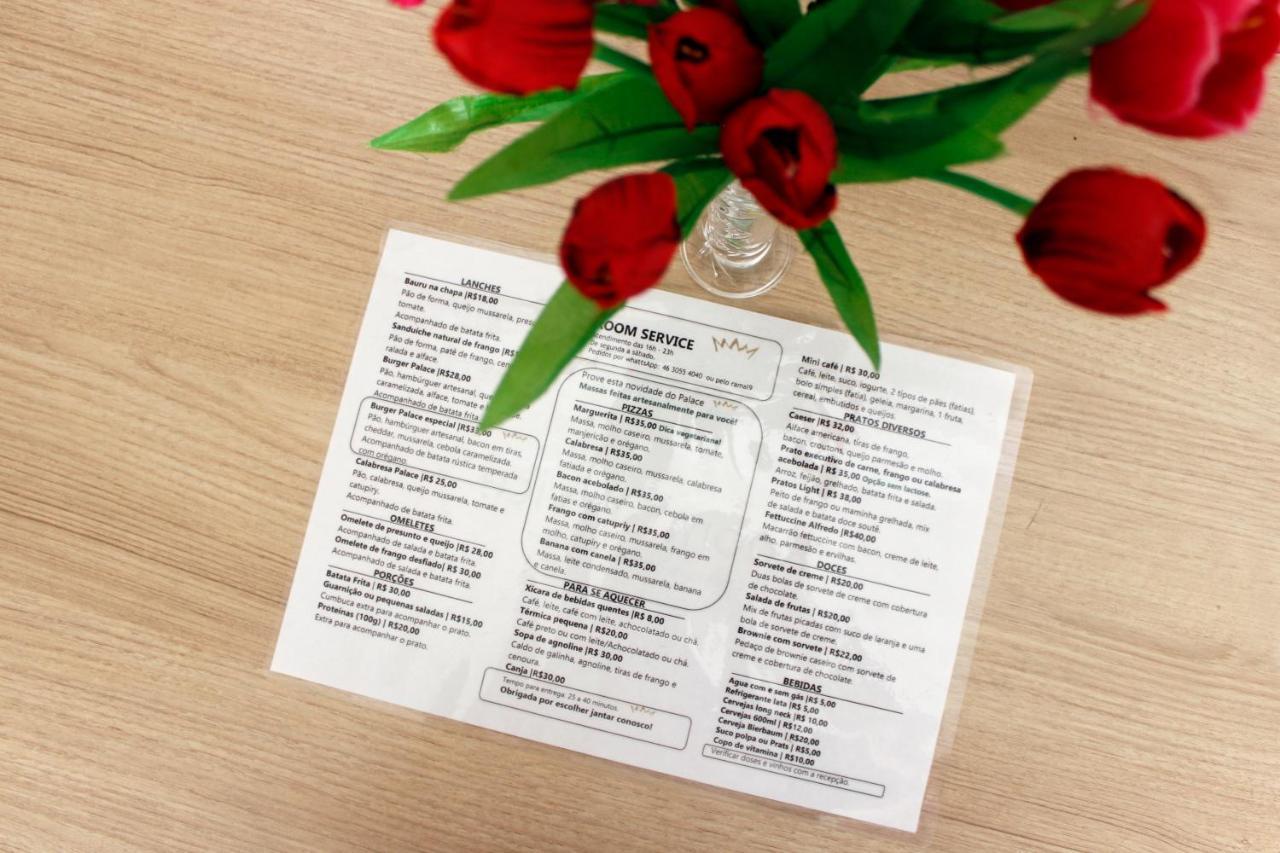 LANCHES
Bauru na chapa |R$18,00
Pão de forma, queijo mussarela,
tomate.
Acompanhado de batata frita.
Sanduiche natural de frango
Pão de forma, patê de frango,
ralada e alface.
Burger Palace |R$28,00
Pão, hambúrguer artesanal,
caramelizada, alface, tomate e
Acompanhado de batata frita
Burger Palace especial
Pão, hambúrguer artesanal, bacon em tiras,
cheddar, mussarela, cebola caramelizada.
Acompanhado de batata rústica temperada
com orégano.
Calabresa Palace |R$ 25,00
Pão, calabresa, queijo mussarela, tomate e
catupiry.
Acompanhado de batata frita.
OMELETES
Omelete de presunto e queijo |R$ 28,00
Acompanhado de salada e batata frita.
Omelete de frango desfiado| R$ 30,00
Acompanhado de salada e batata frita.
PORÇÕES
Batata Frita | R$ 30,00
Guarnição ou pequenas saladas | R$15,00
Cumbuca extra para acompanhar o prato.
Proteínas (100g) | R$20,00
Extra para acompanhar o prato.
SERVICE
das 16h - 23h
De segunda a sábado.
Pedidos por whattsApp: 46 3055 4040 ou pelo ramal9
Prove esta novidade do Palace
Massas feitas artesanalmente para você!
PIZZAS
Marguerita | R$35,00 Dica vegetariana!
Massa, molho caseiro, mussarela, tomate,
manjericão e orégano.
Calabresa | R$35,00
Massa, molho caseiro, mussarela, calabresa
fatiada e orégano.
Bacon acebolado | R$35,00
Massa, molho caseiro, bacon, cebola em
fatias e orégano.
Frango com catupriy | R$35,00
Massa, molho caseiro, mussarela, frango em
molho, catupiry e orégano.
Banana com canela | R$35,00
Massa, leite condensado, mussarela, banana
e canela.
PARA SE AQUECER
Xícara de bebidas quentes |R$ 8,00
Café, leite, café com leite, achocolatado ou chá.
Térmica pequena | R$20,00
Café preto ou com leite/Achocolatado ou chá.
Sopa de agnoline |R$ 30,00
Caldo de galinha, agnoline, tiras de frango e
cenoura.
Canja |R$30,00
Tempo para entrega: 25 a 40 minutos.
Obrigada por escolher jantar conosco!
Mini café | R$ 30,00
Café, leite, suco, iogurte, 2 tipos de pães (fatias),
bolo simples (fatia), geleia, margarina, 1 fruta,
cereal, embutidos e queijos.
PRATOS DIVERSOS
Caeser |R$ 32,00
Alface americana, tiras de frango,
bacon, croutons, queijo parmesão e molho.
Prato executivo de carne, frango ou calabresa
acebolada | R$ 35,00 Opção sem lactose.
Arroz, feijão, grelhado, batata frita e salada.
Pratos Light | R$ 38,00
Peito de frango ou maminha grelhada, mix
de salada e batata doce souté.
Fettuccine Alfredo |R$40,00
Macarrão fettuccine com bacon, creme de leite,
alho, parmesão e ervilhas.
DOCES
Sorvete de creme | R$20,00
Duas bolas de sorvete de creme com cobertura
de chocolate.
Salada de frutas | R$20,00
Mix de frutas picadas com suco de laranja e uma
bola de sorvete de creme.
Brownie com sorvete | R$22,00
Pedaço de brownie caseiro com sorvete de
creme e cobertura de chocolate.
BEBIDAS
Agua com e sem gás |R$ 5,00
Refrigerante lata |R$ 5,00
Cervejas long neck |R$ 10,00
Cervejas 600ml | R$12,00
Cerveja Bierbaum | R$20,00
Suco polpa ou Prats | R$5,00
Copo de vitamina | R$10,00
Verificar doses e vinhos com a recepção.